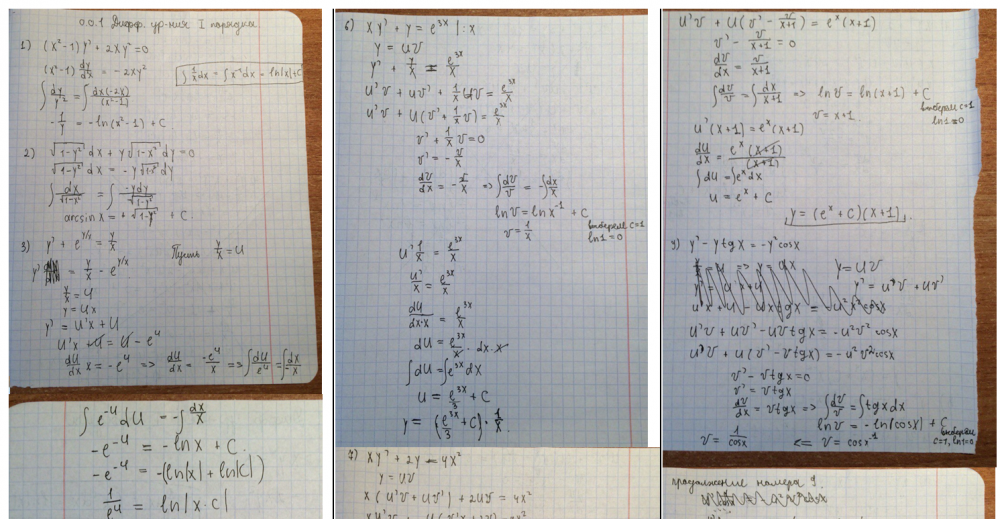 0.0.1 Дифф. ур-ния I порядка
1) (x²-1)y' + 2xy² = 0
(x²-1) dy/dx = -2xy²
∫ 1/x dx = ∫ x⁻¹ dx = ln|x| + C
∫ dy/y² = ∫ dx(-2x)/(x²-1)
-1/y = -ln(x²-1) + C
2) √(1-y²) dx + y√(1-x²) dy = 0
√(1-y²) dx = -y√(1-x²) dy
∫ dx/√(1-x²) = ∫ -ydy/√(1-y²)
arcsin x = + √(1-y²) + C.
3) y' + e^(y/x) = y/x
Пусть y/x = u
y' = y/x - e^(y/x)
y/x = u
y = ux
y' = u'x + u
u'x + u = u - e^u
du/dx x = -e^u => du/dx = -e^u/x => ∫ du/e^u = ∫ -dx/x
∫ e^(-u) du = -∫ dx/x
-e^(-u) = -ln x + C
-e^(-u) = -(ln|x| + ln|c|)
1/e^u = ln|x·c|
6) xy' + y = e^(3x) |: x
y = uv
y' + y/x = e^(3x)/x
u'v + uv' + 1/x uv = e^(3x)/x
u'v + u(v' + 1/x v) = e^(3x)/x
v' + 1/x v = 0
v' = -v/x
dv/dx = -v/x => ∫ dv/v = -∫ dx/x
ln v = ln x⁻¹ + C
выберем c=1
ln1=0
v = 1/x
u' 1/x = e^(3x)/x
u'/x = e^(3x)/x
du/(dx·x) = e^(3x)/x
du = e^(3x)/x · dx·x
∫ du = ∫ e^(3x) dx
u = e^(3x)/3 + C
y = (e^(3x)/3 + C)· 1/x.
7) xy' + 2y = 4x²
y = uv
x(u'v + uv') + 2uv = 4x²
u'v + u(v' - v/(x+1)) = e^x(x+1)
v' - v/(x+1) = 0
dv/dx = v/(x+1)
∫ dv/v = ∫ dx/(x+1) => ln v = ln(x+1) + C
выберем c=1
ln1=0
v = x+1.
u'(x+1) = e^x(x+1)
du/dx = e^x(x+1)/(x+1)
∫ du = ∫ e^x dx
u = e^x + C
y = (e^x + C)(x+1).
9) y' - y tgx = -y² cosx
y = uv
y' = u'v + uv'
u'v + uv' - uv tgx = -u²v² cosx
u'v + u(v' - v tgx) = -u²v² cosx
v' - v tgx = 0
v' = v tgx
dv/dx = v tgx => ∫ dv/v = ∫ tgx dx
ln v = -ln(cosx) + C
выберем
c=1, ln1=0
v = 1/cosx <= v = cosx⁻¹
продолжение номера 9.